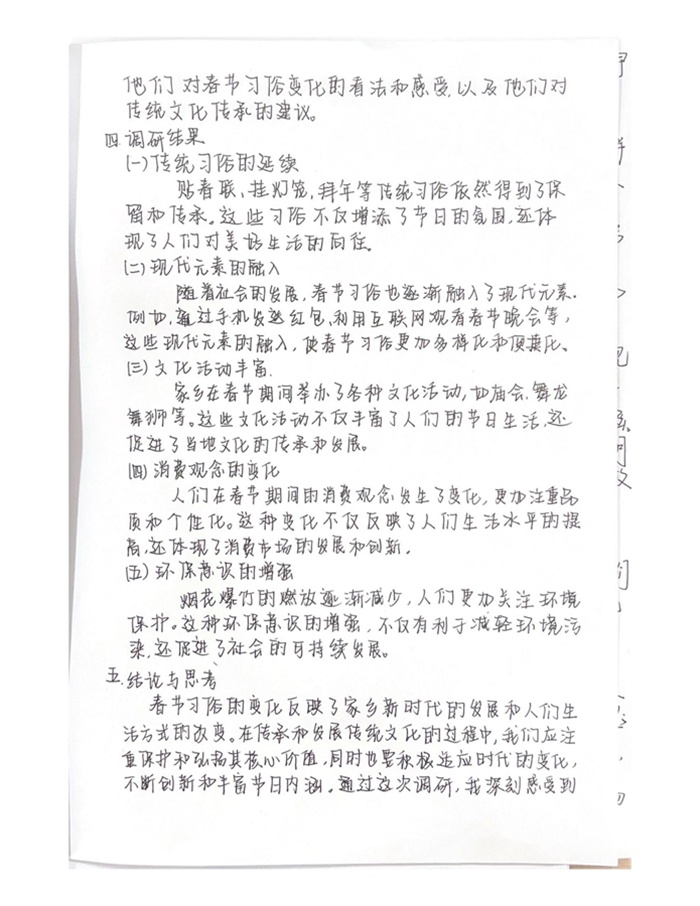 他们对春节习俗变化的看法和感受,以及他们对
传统文化传承的建议。
四.调研结果
(一)传统习俗的延续
贴春联、挂灯笼,拜年等传统习俗依然得到了保
留和传承。这些习俗不仅增添了节日的氛围,还体
现了人们对美好生活的向往。
(二)现代元素的融入
随着社会的发展,春节习俗也逐渐融入了现代元素.
例如,通过手机发送红包、利用互联网观看春节晚会等,
这些现代元素的融入,使春节习俗更加多样化和便捷化、
(三)文化活动丰富.
家乡在春节期间举办了各种文化活动,如庙会、舞龙
舞狮等。这些文化活动不仅丰富了人们的节日生活,还
促进了当地文化的传承和发展。
(四)消费观念的变化
人们在春节期间的消费观念发生了变化,更加注重品
质和个性化。这种变化不仅反映了人们生活水平的提
高,还体现了消费市场的发展和创新。
(五)环保意识的增强
烟花爆竹的燃放逐渐减少,人们更加关注环境
保护。这种环保意识的增强,不仅有利于减轻环境污
染,还促进了社会的可持续发展。
五.结论与思考
春节习俗的变化反映了家乡新时代的发展和人们生
活方式的改变。在传承和发展传统文化的过程中,我们应注
重保护和弘扬其核心价值,同时也要积极适应时代的变化,
不断创新和丰富节日内涵。通过这次调研,我深刻感受到